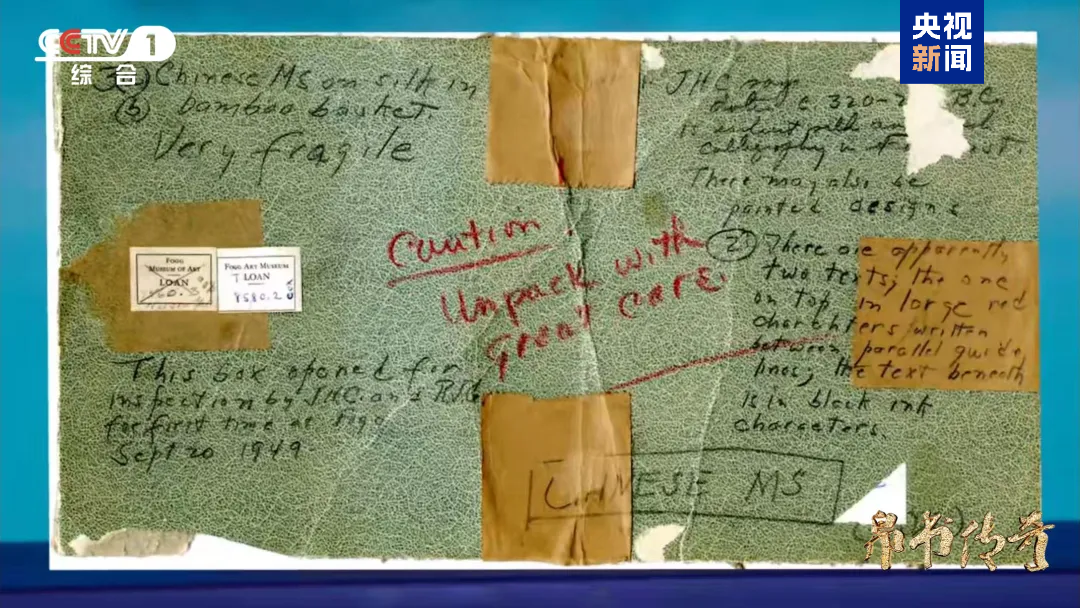 CCTV 1
综合
央视
新闻
(a) Chinese MS on silk in
(b) Bamboo basket.
Very fragile
JHC
c. 320- B.C.
calligraphy in
There may also be
painted designs
(2) There are apparently
two texts; the one
on top in large red
charahters written
between parallel guide
lines; the text beneath
is in black ink
characters.
Caution.
Unpack with
great care.
FOGG
MUSEUM OF ART
LOAN
FOGG ART MUSEUM
T LOAN
8580.2
This box opened for
inspection by JHC and
for first time at Fogg
Sept 20 1949
CHINESE MS
帛书传奇